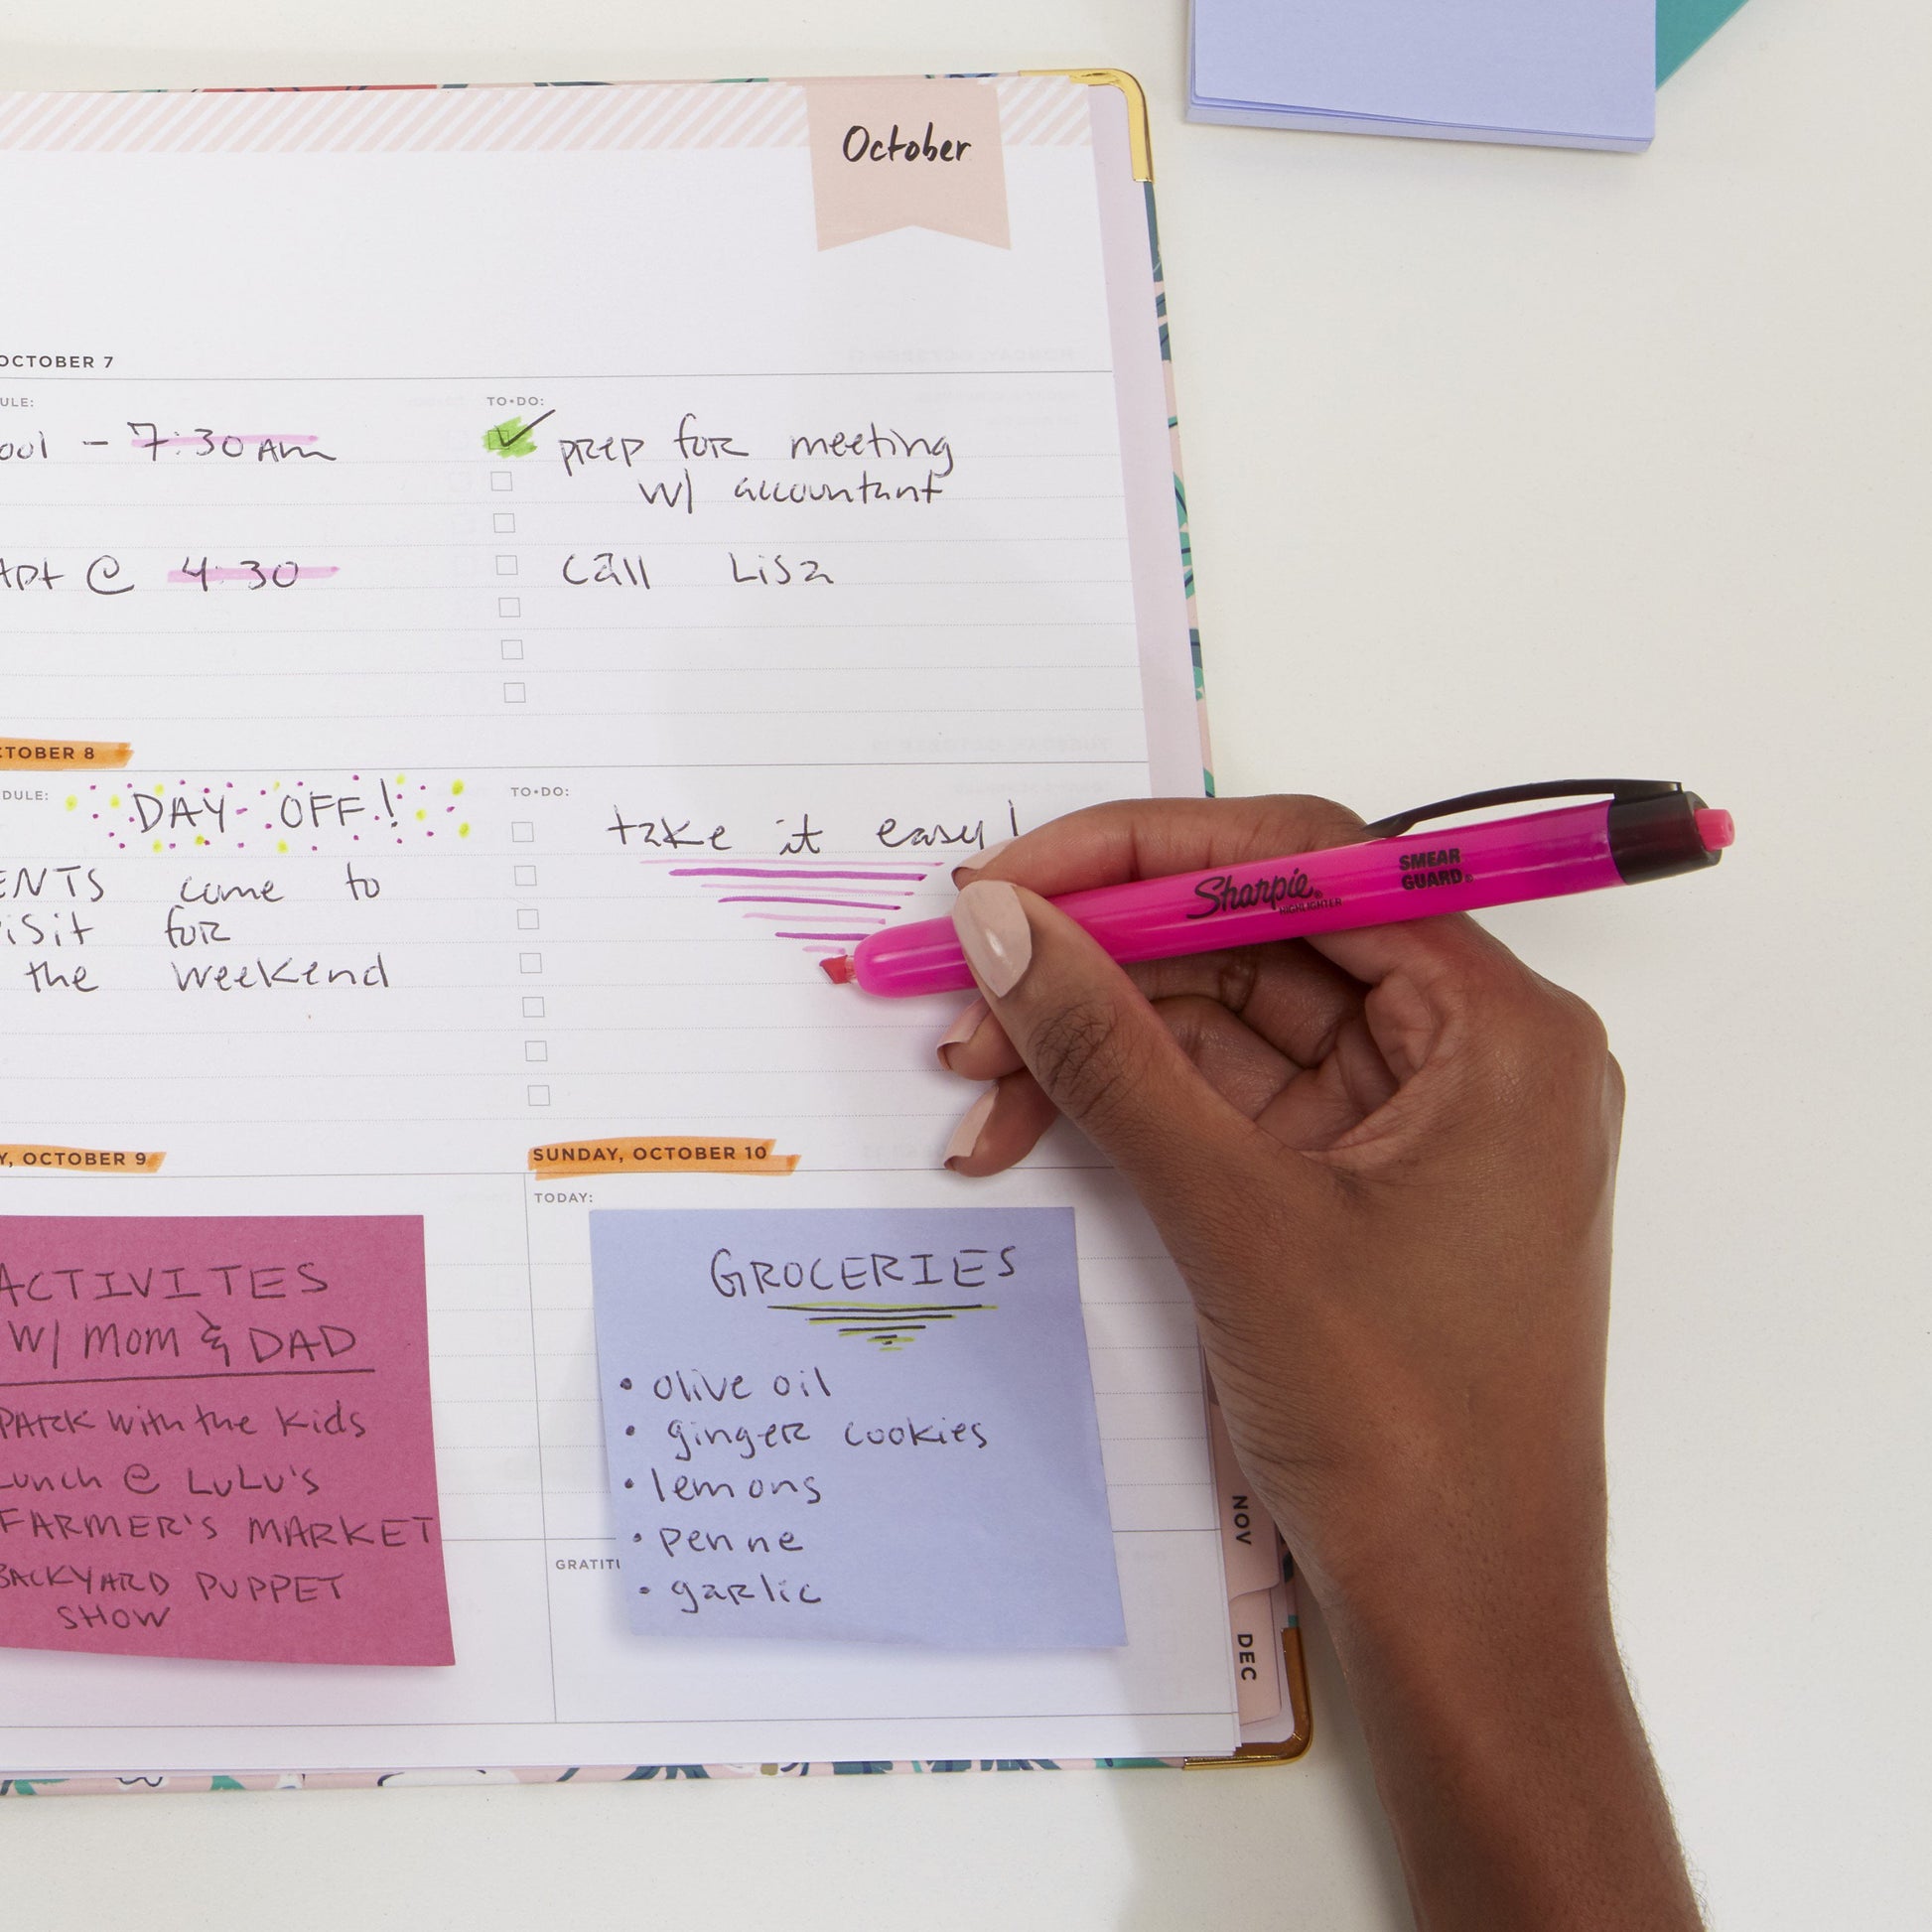 October
OCTOBER 7
ULE:
TO•DO:
ool – 7:30 AM
prep for meeting
w/ accountant
Apt @ 4:30
call Lisa
CTOBER 8
DULE:
TO•DO:
DAY OFF!
take it easy!
ENTS come to
visit for
the weekend
Sharpie®
HIGHLIGHTER
SMEAR
GUARD®
Y, OCTOBER 9
SUNDAY, OCTOBER 10
TODAY:
ACTIVITES
W/ MOM & DAD
PARK with the kids
Lunch @ LULU'S
FARMER'S MARKET
BACKYARD PUPPET
SHOW
GROCERIES
• olive oil
• ginger cookies
• lemons
• penne
• garlic
GRATIT
NOV
DEC